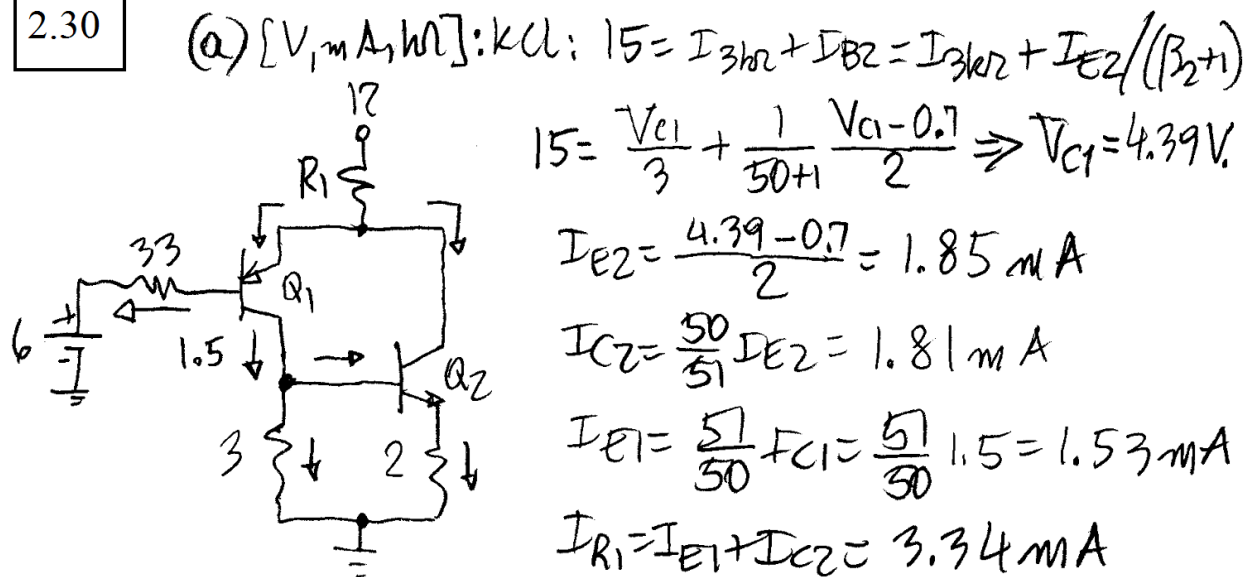 2.30
(a) [V, mA, kΩ]: KCL: 15 = I3kΩ + IB2 = I3kΩ + IE2/(β2+1)
15 = VC1/3 + 1/(50+1) (VC1-0.7)/2 ⇒ VC1 = 4.39V.
IE2 = (4.39-0.7)/2 = 1.85 mA
IC2 = 50/51 IE2 = 1.81 mA
IE1 = 51/50 IC1 = 51/50 1.5 = 1.53 mA
IR1 = IE1 + IC2 = 3.34 mA
12
R1
33
Q1
6
+
-
1.5
Q2
3
2